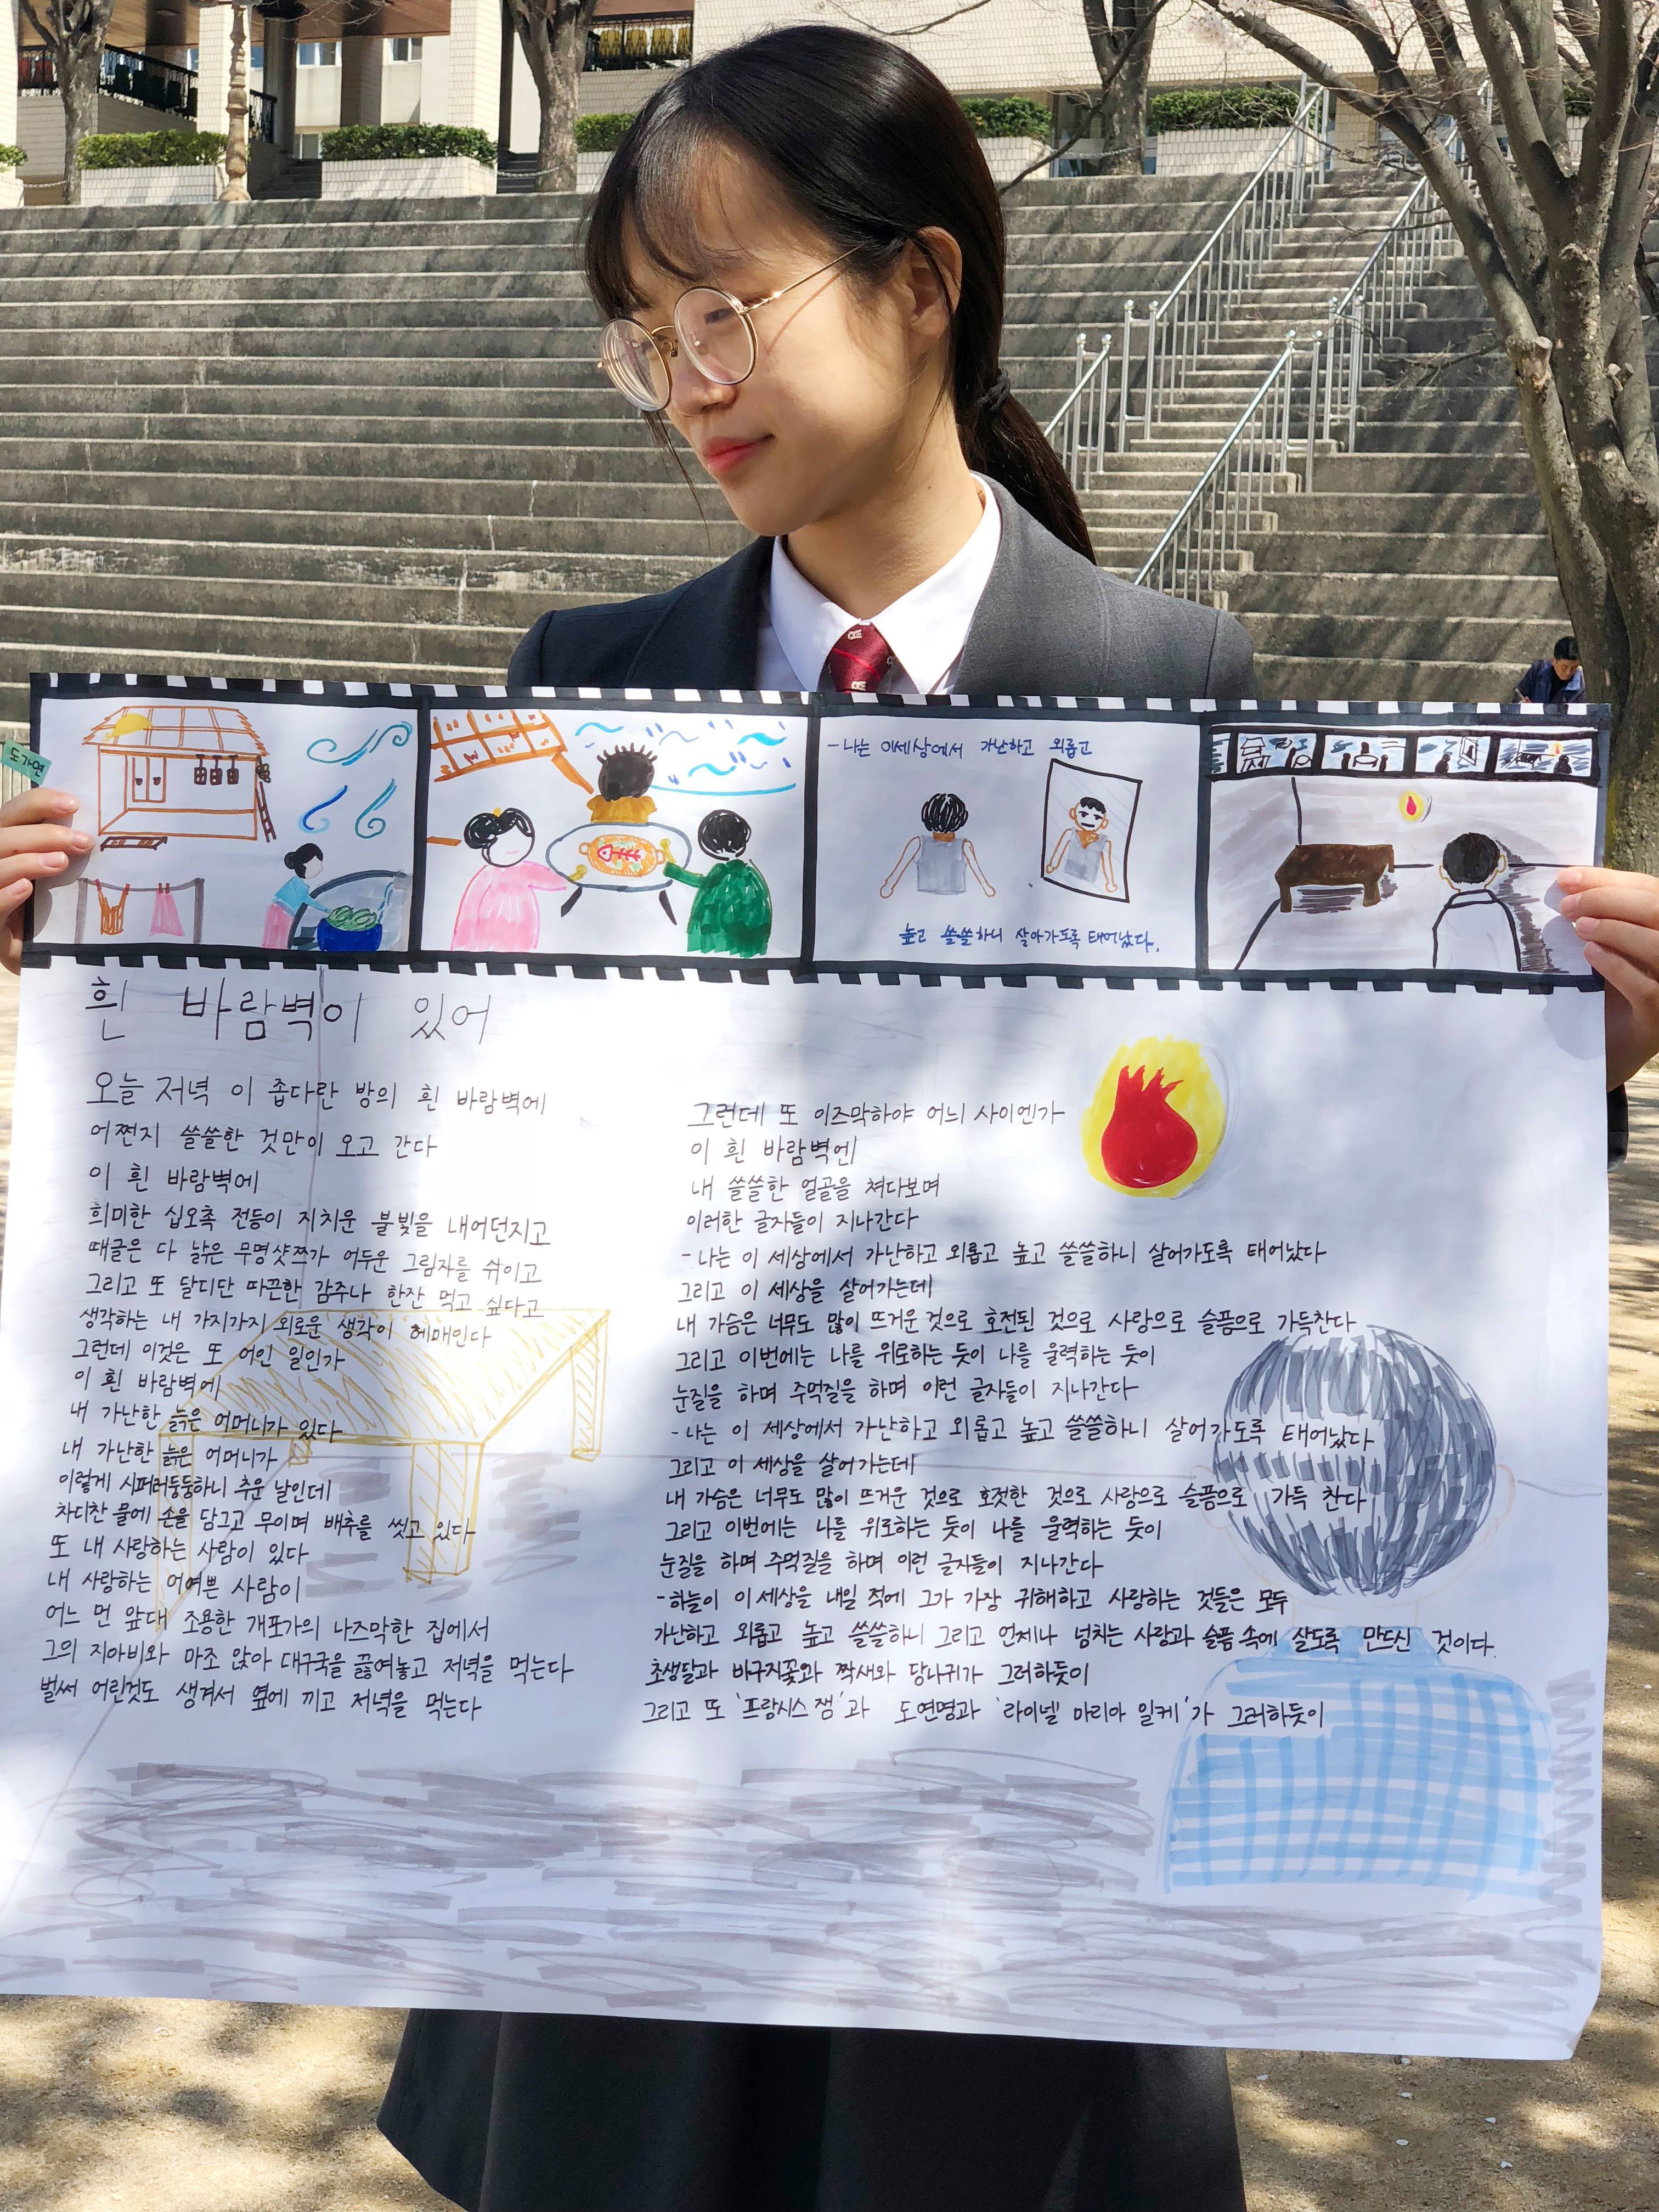 도가연
- 나는 이세상에서 가난하고 외롭고
높고 쓸쓸하니 살아가도록 태어났다.
흰 바람벽이 있어
오늘 저녁 이 좁다란 방의 흰 바람벽에
어쩐지 쓸쓸한 것만이 오고 간다
이 흰 바람벽에
희미한 십오촉 전등이 지치운 불빛을 내어던지고
때글은 다 낡은 무명샷쯔가 어두운 그림자를 쉬이고
그리고 또 달디단 따끈한 감주나 한잔 먹고 싶다고
생각하는 내 가지가지 외로운 생각이 헤매인다
그런데 이것은 또 어인 일인가
이 흰 바람벽에
내 가난한 늙은 어머니가 있다
내 가난한 늙은 어머니가
이렇게 시퍼러둥둥하니 추운 날인데
차디찬 물에 손을 담그고 무이며 배추를 씻고 있다
또 내 사랑하는 사람이 있다
내 사랑하는 어여쁜 사람이
어느 먼 앞대 조용한 개포가의 나즈막한 집에서
그의 지아비와 마조 앉아 대구국을 끓여놓고 저녁을 먹는다
벌써 어린것도 생겨서 옆에 끼고 저녁을 먹는다
그런데 또 이즈막하야 어늬 사이엔가
이 흰 바람벽엔
내 쓸쓸한 얼골을 쳐다보며
이러한 글자들이 지나간다
- 나는 이 세상에서 가난하고 외롭고 높고 쓸쓸하니 살어가도록 태어났다
그리고 이 세상을 살어가는데
내 가슴은 너무도 많이 뜨거운 것으로 호젼된 것으로 사랑으로 슬픔으로 가득찬다
그리고 이번에는 나를 위로하는 듯이 나를 울력하는 듯이
눈질을 하며 주먹질을 하며 이런 글자들이 지나간다
- 나는 이 세상에서 가난하고 외롭고 높고 쓸쓸하니 살어가도록 태어났다
그리고 이 세상을 살어가는데
내 가슴은 너무도 많이 뜨거운 것으로 호젓한 것으로 사랑으로 슬픔으로 가득 찬다
그리고 이번에는 나를 위로하는 듯이 나를 울력하는 듯이
눈질을 하며 주먹질을 하며 이런 글자들이 지나간다
- 하늘이 이 세상을 내일 적에 그가 가장 귀해하고 사랑하는 것들은 모두
가난하고 외롭고 높고 쓸쓸하니 그리고 언제나 넘치는 사랑과 슬픔 속에 살도록 만드신 것이다.
초생달과 바구지꽃과 짝새와 당나귀가 그러하듯이
그리고 또 '프랑시스 잼'과 도연명과 '라이넬 마리아 일케'가 그러하듯이